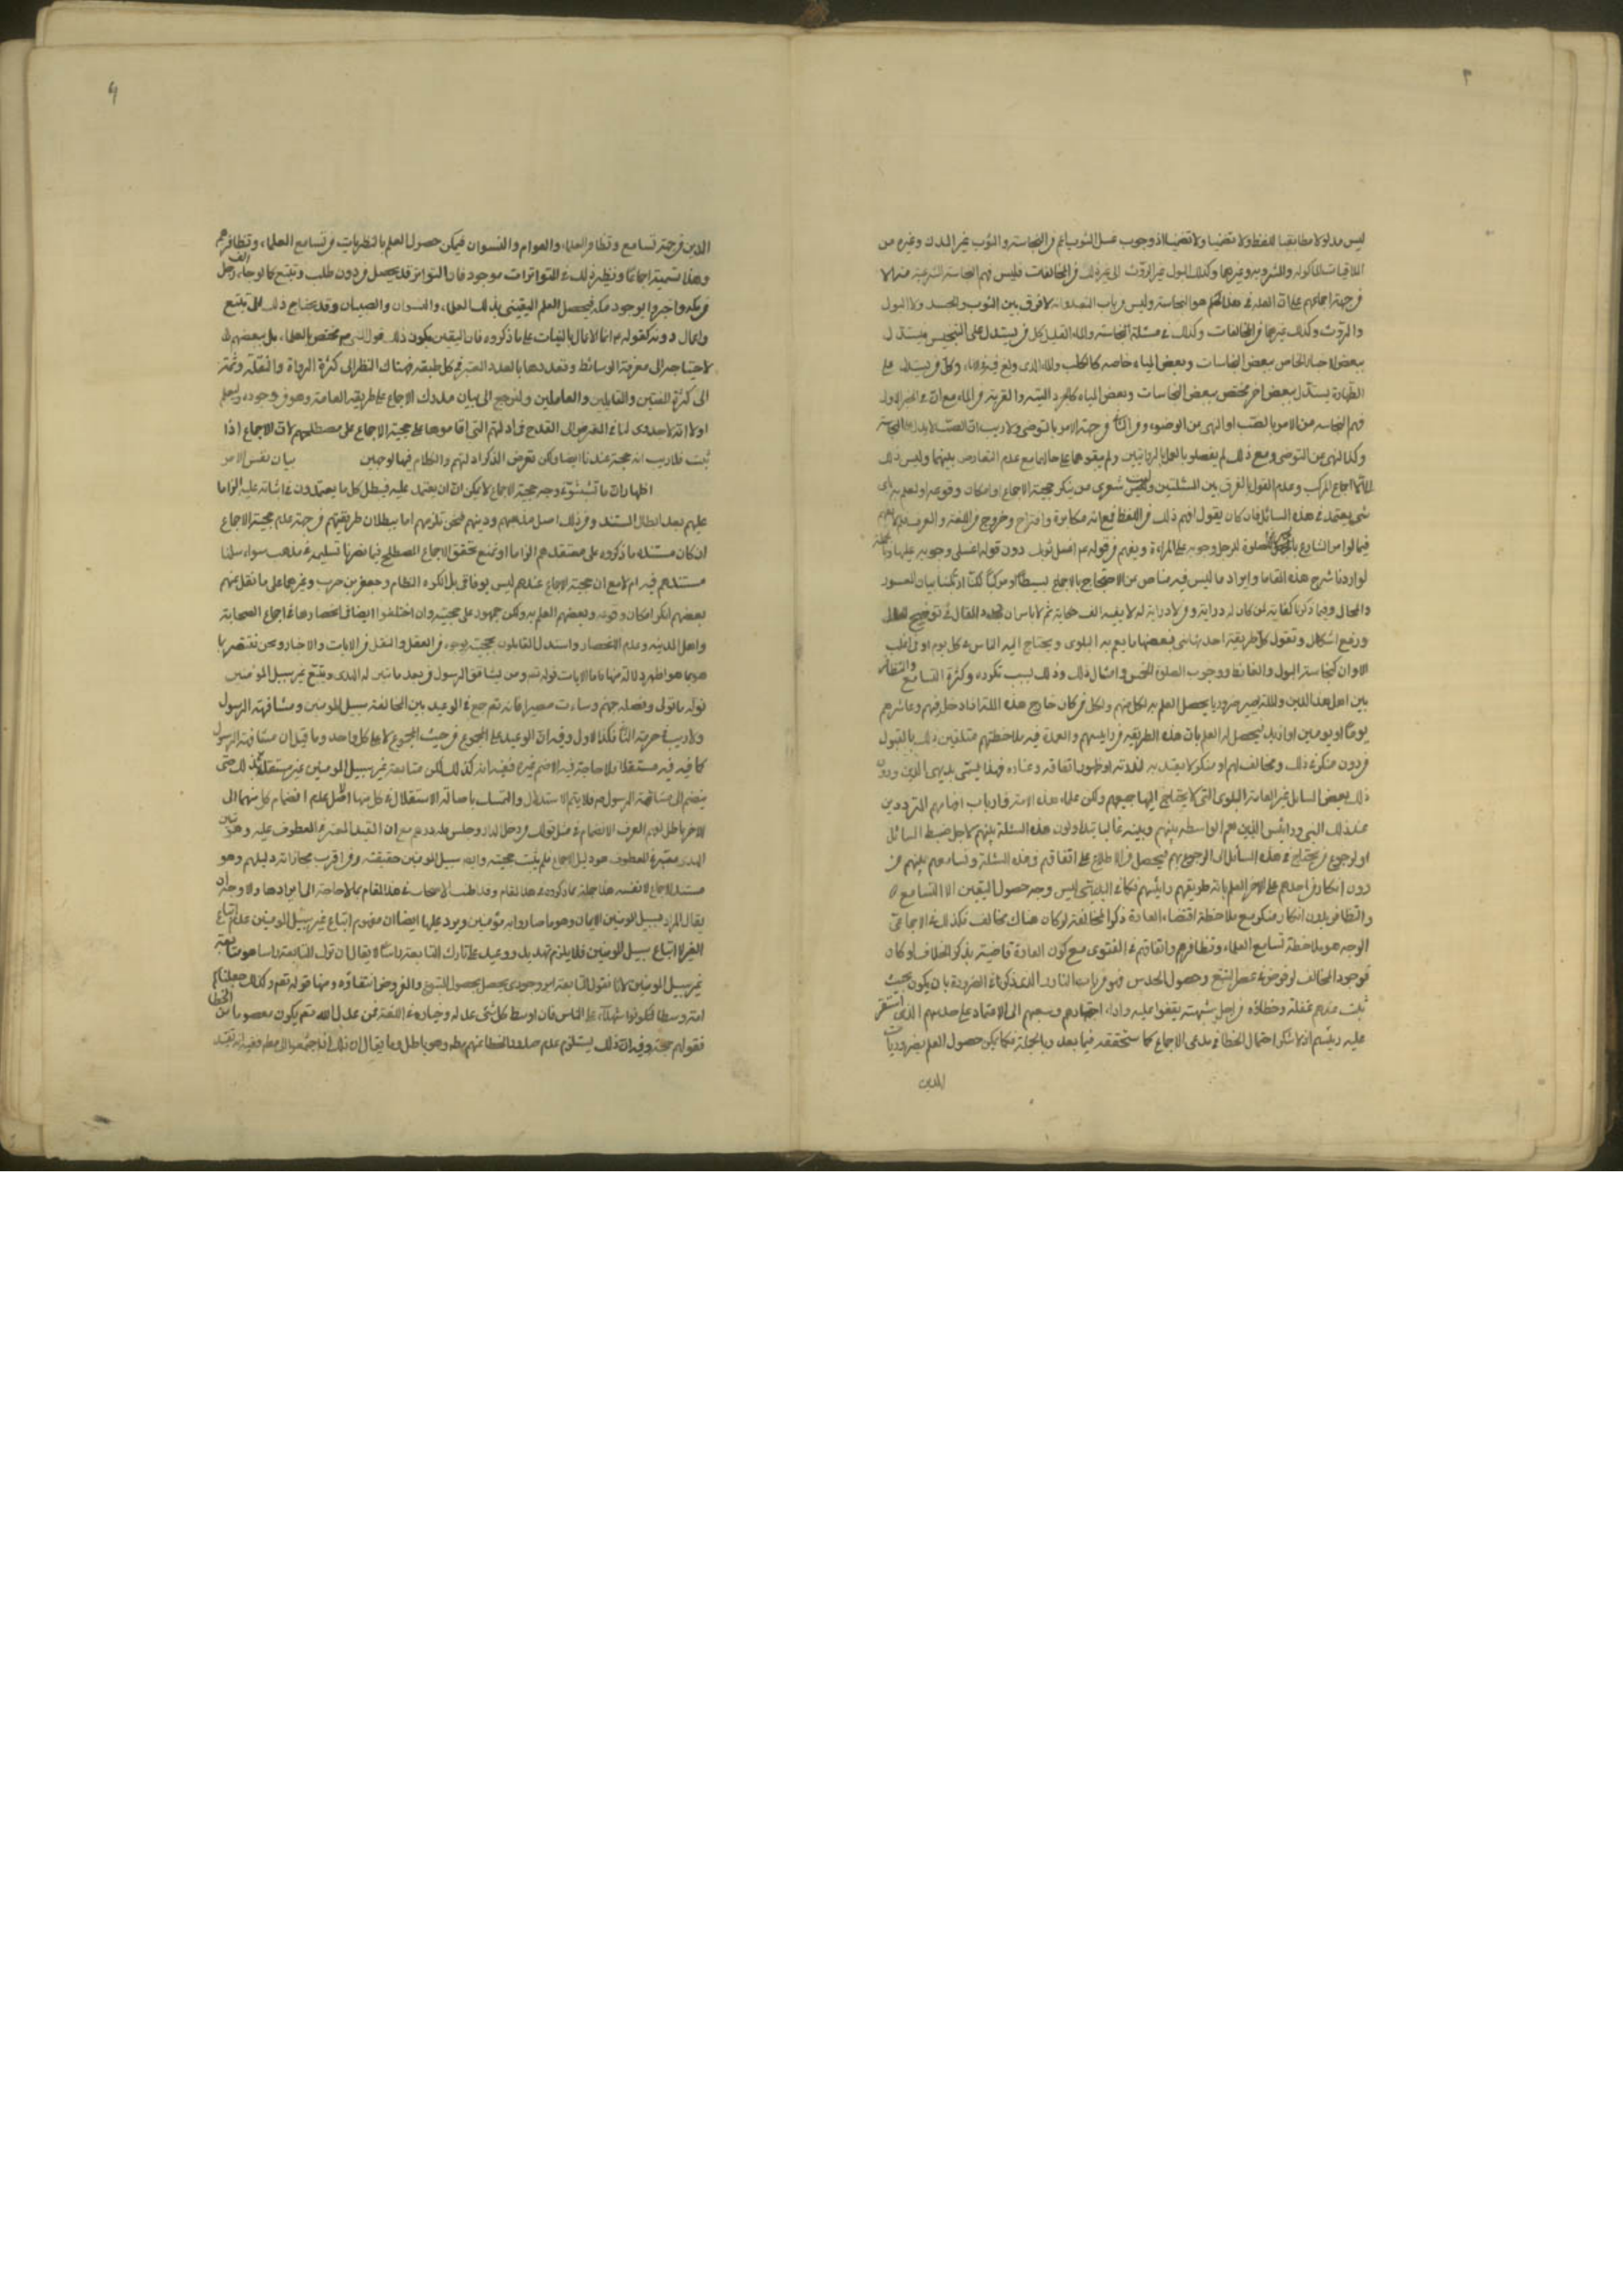 ليس مدلولا مطابقيا للفظ ولا تضمنيا ولا اذ وجوب غسل الثوب اعم من النجاسة والثوب غير البدن وغيره من
الملاقيات المأكولة والمشروبة وغيرهما وكذلك البول غير الروث الى غير ذلك من المخالفات فليس فهم النجاسة الشرعية منها الا
من جهة اجماعهم على ان العلة في هذا الحكم هو النجاسة وليس من باب التعبد وانه لا فرق بين الثوب والجسد ولا البول
والروث وكذلك غيرهما من المخالفات وكذلك في مسئلة نجاسة الماء القليل كل من يستدل على التنجيس يستدل
ببعض الاخبار الخاص ببعض النجاسات وبعض المياه خاصة كالكلب والماء الذى ولغ فيه في الاناء وكل من يستدل على
الطهارة يستدل ببعض اخر مختص ببعض النجاسات وبعض المياه كالجرذ الميت والقربة من الماء مع ان في الخبر الاول
فهم النجاسة من الامر بالصب او النهى من الوضوء وفى من جهة الامر بالتوضى ولا ريب ان الصب لا يدل على النجاسة
وكذا النهى من التوضى ومع ذلك لم يفصلوا بالعمل بالروايتين ولم يبقوهما على حالهما مع عدم التعارض بينهما وليس ذلك
الا اجماع المركب وعدم القول بالفرق بين المسئلتين وليت شعرى من ينكر حجية الاجماع او امكان وقوعه او العلم به باى
شىء يعتمد في هذه المسائل فان كان يقول افهم ذلك من اللفظ فمع انه مكابرة واقتراح وخروج من اللغة والعرف
فيما لو امر الشارع الصلوة للرجل وجوبه على المراة ويفهم من قوله عم اغسل ثوبك دون قوله اغسلى وجوبه عليها وبالجملة
لو اردنا شرح هذه المقاما وايراد ما ليس فيه مناص من الاحتجاج بالاجماع بسيطا او مركبا لكنا
والمحال وفيما ذكرنا كفاية لمن كان له دراية ومن لا دراية له لا يفيده الف حكاية ثم لا باس ان نجدد المقال في توضيح الحال
ورفع اشكال ونقول كل طريقة احدثها نبى فبعضها ما يعم به البلوى ويحتاج اليه الناس في كل يوم او في اغلب
الاوان كنجاسة البول والغائط ووجوب الصلوة الخمس وامثال ذلك وذلك بسبب تكرره وكثرة التسامع والتظافر
بين اهل هذا الدين والملة يصير ضروريا يحصل العلم به لكل منهم ولكل من كان خارج هذه الملة اذا دخل فيهم وعاشرهم
يوما او يومين او ازيد فيحصل له العلم بان هذه الطريقة من رئيسهم والعمدة فيه ملاحظتهم متلقين ذلك بالقبول
من دون منكر في ذلك ومخالف لهم او منكر لا يعتد به لندرته او ظهور نفاقه وعناده فهذا يسمى بديهى الدين ودون
ذلك بعض المسايل غير العامة البلوى التى لا يحتاج اليها جميعهم ولكن علماء هذه الامة وارباب افهامهم المترددين
عند ذلك النبى ورئيس الدين هم الواسطة بينهم وبينه غالبا يتداولون هذه المسئلة بينهم لاجل ضبط المسائل
او لرجوع من يحتاج في هذه المسائل الى الرجوع بهم فيحصل من الاطلاع على اتفاقهم في هذه المسئلة وتسامعهم بينهم من
دون انكار من احدهم على الاخر العلم بانه طريقهم رئيسهم فكما في البديهى ليس وجه حصول اليقين الا التسامع
والتظافر بدون انكار منكر مع ملاحظة اقتضاء العادة ذكر المخالفة لو كان هناك مخالف فكذلك في الاجماعى
الوجه هو ملاحظة تسامع العلماء وتظافرهم واتفاقهم في الفتوى مع كون العادة قاضية بذكر الخلاف لو كان
فوجود المخالف لو فرض في عصر الشيخ وحصول الحدس فهو من باب النادر الذى ذكرنا في الضرورة بان يكون بحيث
ثبت عندهم غفلته وخطاؤه من اجل شبهته يقفوا عليه واداه اجتهادهم وسعيهم الى الاعتماد على حدسهم الذى استقر
عليه رئيسهم اذ لا ننكر احتمال الخطا في مدعى الاجماع كما ستحققه فيما بعد وبالجملة فكما يمكن حصول العلم بضروريات
الدين
الدين من جهة تسامع وتظافر العلماء والعوام والنسوان فيمكن حصول العلم بالنظريات من تسامع العلماء وتظافرهم
وهذا نسميه اجماعا ونظير ذلك في المتواترات موجود فان التواتر قد يحصل من دون طلب وتتبع كما لو جاء الف رجل
من مكة واخبروا بوجود مكة فيحصل العلم اليقينى بذلك للعلماء والنسوان والصبيان وقد يحتاج ذلك الى تتبع
واعمال روية كقوله ص انما الاعمال بالنيات على ما ذكروه فان اليقين بكون ذلك قول النبى ص مختص بالعلماء بل ببعضهم
لاحتياجه الى معرفة الوسائط وتعددها بالعدد المعتبر في كل طبقة فهناك النظر الى كثرة الرواة والنقلة وثمة
الى كثرة المفتين والقايلين والعاملين ولنرجع الى بيان مدرك الاجماع على طريقة العامة وهو من وجوه وليعلم
اولا انه لا جدوى لنا في التعرض الى القدح في ادلتهم التى اقاموها على حجية الاجماع على مصطلحهم لان الاجماع اذا
ثبت فلا ريب انه حجة عندنا ايضا ولكن نتعرض لذكر ادلتهم والكلام فيها لوجهين بيان نفس الامر
اظهار ان ما تشبثوا في وجه حجية الاجماع لا يمكن ان يعتمد عليه فيبطل كل ما يعتمدون في اثباته عليه الزاما
عليهم بعد ابطال المستند ومن ذلك اصل مذهبهم ودينهم فنحن نلزمهم اما ببطلان طريقتهم من جهة عدم حجية الاجماع
ان كان مستنده ما ذكروه على معتقدهم الزاما او بمنع تحقق الاجماع المصطلح فيما يضرنا تسليمه في مذهب سواء سلمنا
مستندهم فيه ام لا مع ان حجية الاجماع عندهم ليس بوفاقى بل انكره النظام وجعفر بن حرب وغيرهما على ما نقل عنهم
بعضهم انكر امكان وقوعه وبعضهم العلم به ولكن جمهورهم على حجيته وان اختلفوا ايضا في انحصارها في اجماع الصحابة
واهل المدينة وعدم الانحصار واستدل القايلون بحجيته بوجوه من العقل والنقل من الايات والاخبار ونحن نقتصر بما
هو اظهر دلالة منها فاما الايات قوله تعم ومن يشاقق الرسول من بعد ما تبين له الهدى ويتبع غير سبيل المؤمنين
نوله ما تولى ونصله جهنم وساءت مصيرا فانه تعم جمع في الوعيد بين مخالفة سبيل المؤمنين ومشاقة الرسول
ولا ريب في حرمة الثانى فكذا الاول وفيه ان الوعيد على المجموع من حيث المجموع لا على كل واحد وما قيل ان مشاقة الرسول
كافية فيه مستقلا فلا حاجة فيه الى ضم غيره ففيه انه كذلك لكن متابعة غير سبيل المؤمنين غير مستقلة في ذلك حتى
ينضم الى مشاقة الرسول ص فلا يتم الاستدلال والتمسك باصالة الاستقلال في كل منها اى اصل عدم انضمام كل منهما الى
الاخر باطل لفهم العرف الانضمام في مثل قولك من دخل الدار وجلس فله درهم مع ان القيد المعتبر في المعطوف عليه وهو تبين
الهدى معتبر في المعطوف هو دليل الاجماع فلم يثبت حجيته وايضا سبيل المؤمنين حقيقته ومن اقرب مجازاته دليلهم وهو
مستند الاجماع لا نفسه هذا جملة مما ذكروه في هذا المقام وقد اطنب الاصحاب في هذا المقام بما لا حاجة الى ايرادها ولا وجه ان
يقال المراد بسبيل المؤمنين الايمان وهو ما صاروا به مؤمنين ويرد عليها ايضا ان مفهوم اتباع غير سبيل المؤمنين عدم اتباع
الغير لا اتباع سبيل المؤمنين فلا يلزم تهديد ووعيد على تارك المتابعة راسا لا يقال ان ترك المتابعة راسا هو متابعة
غير سبيل المؤمنين لانا نقول المتابعة امر وجودى يحصل بحصول المتبوع والمفروض انتفاؤه ومنها قوله تعم وكذلك جعلناكم
امة وسطا لتكونوا شهداء على الناس فان اوسط كل شىء عدله وخياره في اللغة فمن عدله الله تعم يكون معصوما من الخطا
فقولهم حجة وفيه ان ذلك يستلزم عدم صدور الخطا عنهم مطلقا وهو باطل وما يقال ان ذلك اذا اجتمعوا لا مطلقا ففيه انه تقييد